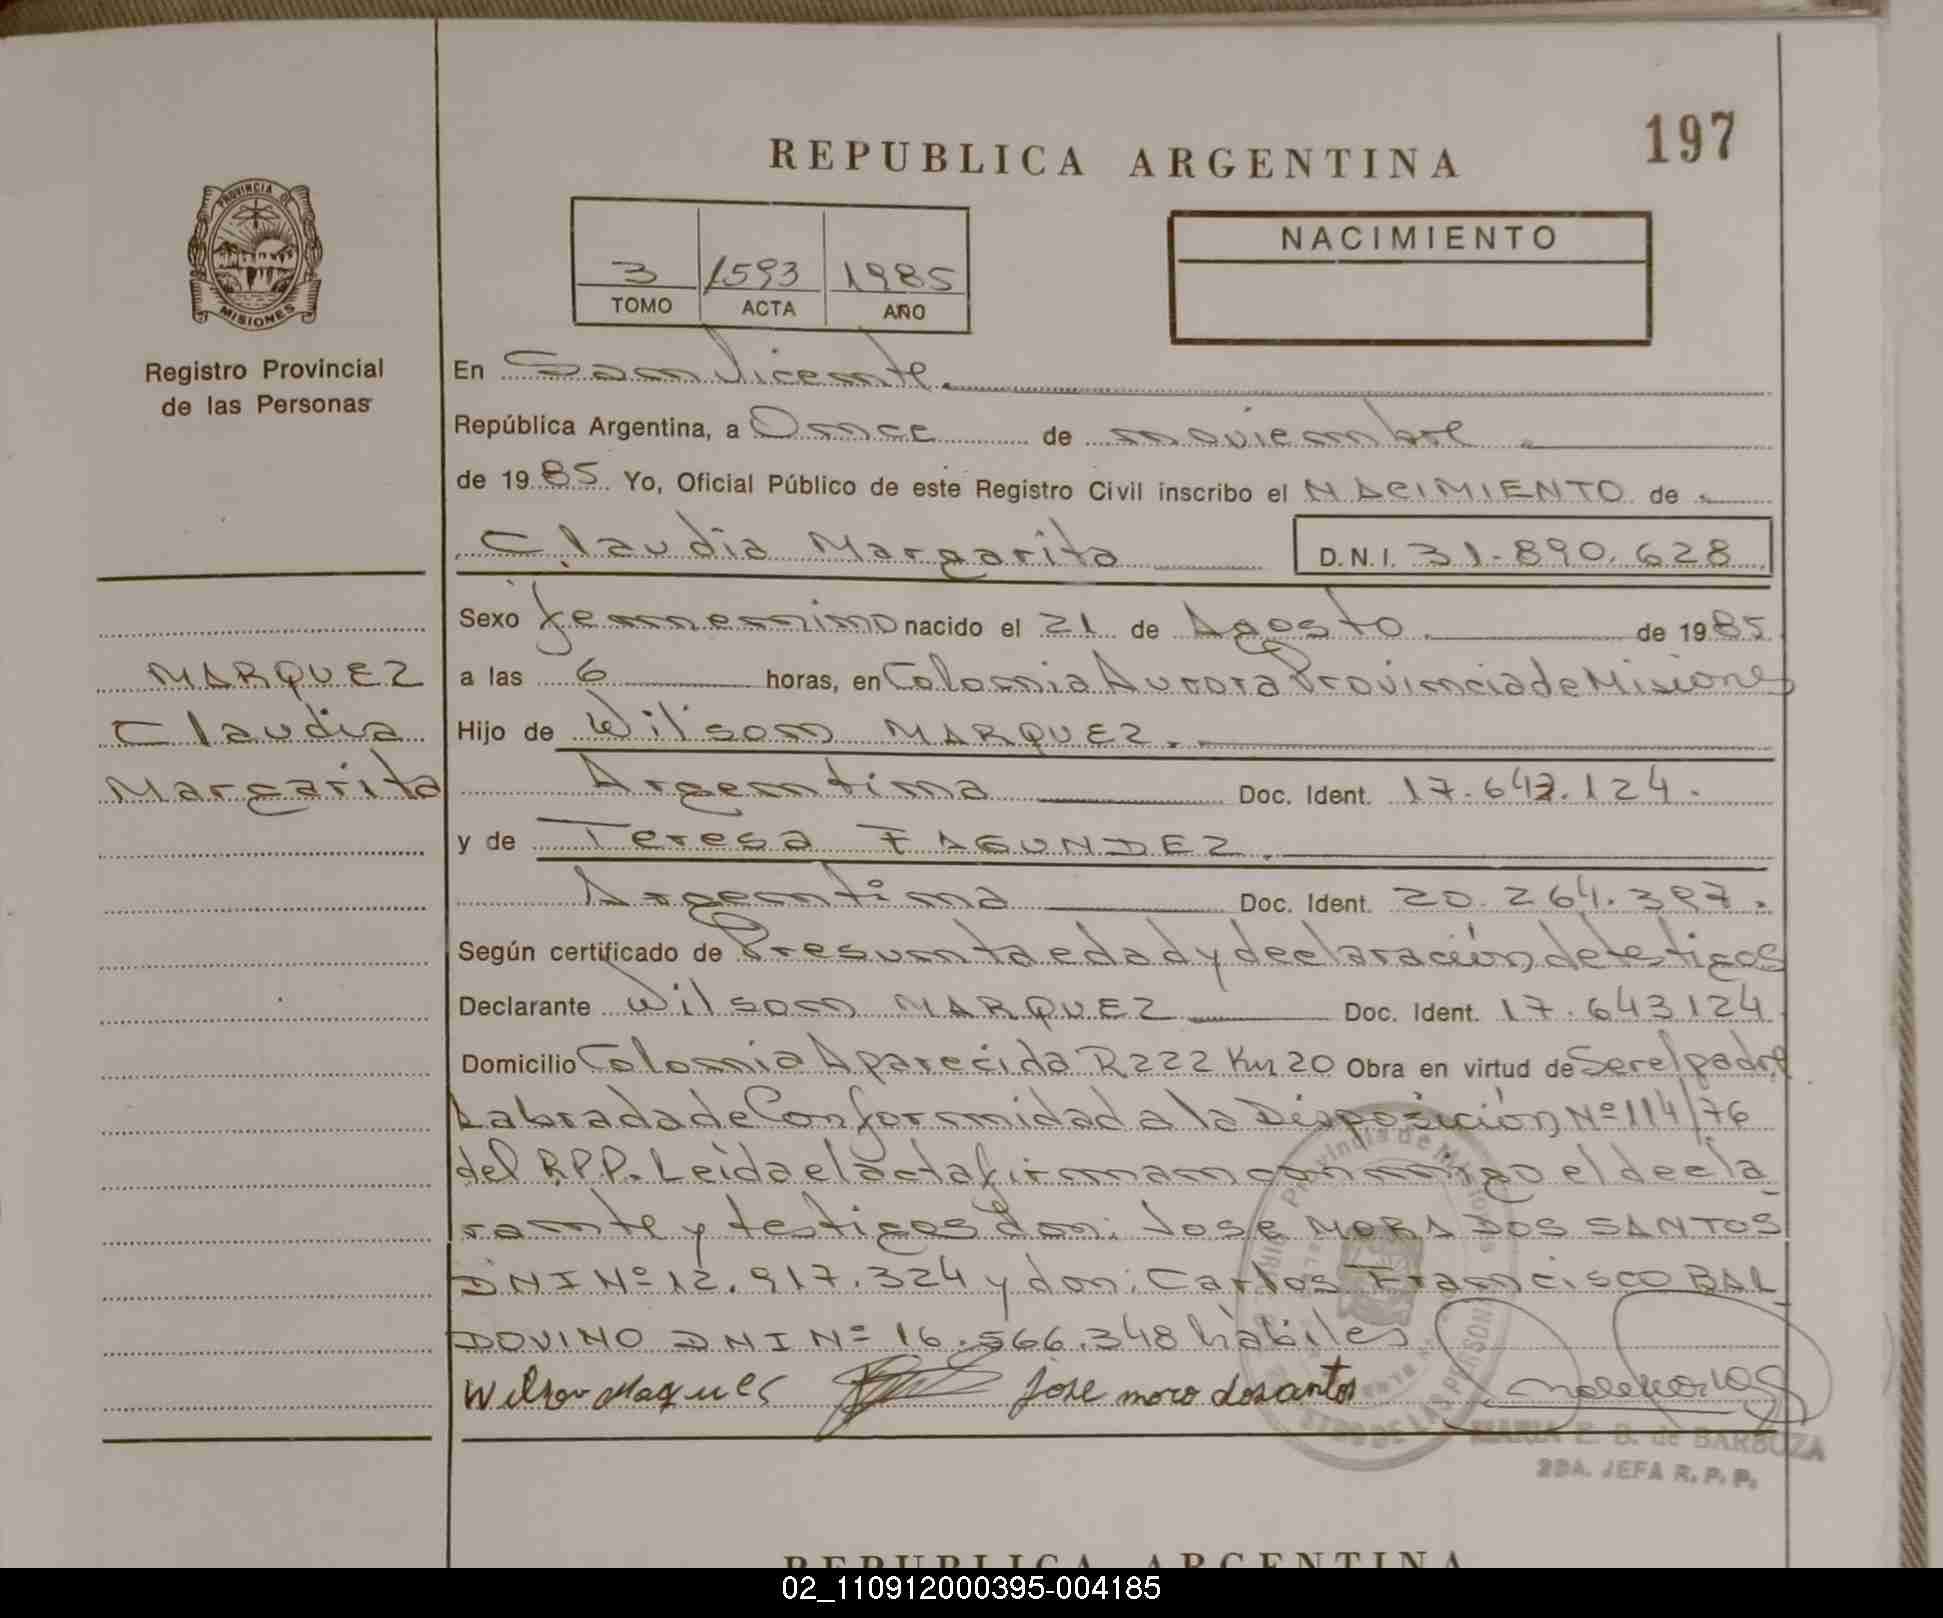 197
REPUBLICA ARGENTINA
PROVINCIA DE
MISIONES
Registro Provincial
de las Personas
3 1593 1985
TOMO ACTA AÑO
NACIMIENTO
En San Vicente.
República Argentina, a Once de noviembre
de 1985. Yo, Oficial Público de este Registro Civil inscribo el NACIMIENTO de
Claudia Margarita D.N.I. 31.890.628
Sexo femenino nacido el 21 de Agosto de 1985
MARQUEZ
Claudia
Margarita
a las 6 horas, en Colonia Aurora Provincia de Misiones
Hijo de Wilson MARQUEZ.
Argentina Doc. Ident. 17.643.124.
y de Teresa FAGUNDEZ.
Argentina Doc. Ident. 20.264.397.
Según certificado de Presunta edad y declaración de testigos
Declarante Wilson MARQUEZ Doc. Ident. 17.643124
Domicilio Colonia Aparecida R222 Km 20 Obra en virtud de Ser el padre
Labrada de Conformidad a la Disposición Nº 114/76
del R.P.P. Leída el acta firman conmigo el decla
rante y testigos Don: Jose MORA DOS SANTOS
DNI Nº 12.917.324 y don: Carlos Francisco BAL
DOVINO DNI Nº 16.566.348 hábiles
Wilson Maques Jose moro dosantos
MARIA E. B. de BARBOZA
2DA. JEFA R. P. P.
REPUBLICA ARGENTINA
02_110912000395-004185